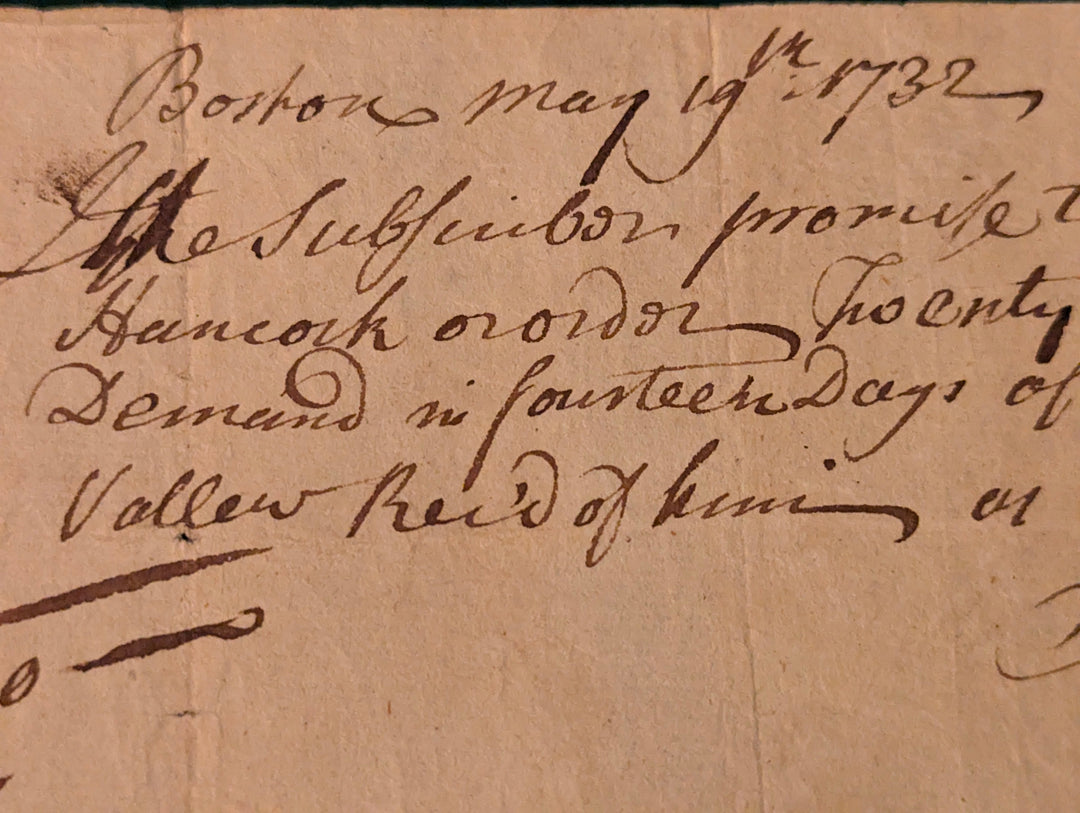 Boston May 19th. 1732
I the Subscriber promise t
Hancock or order Twenty
Demand in fourteen Days af
Vallew Rec'd of him as
0